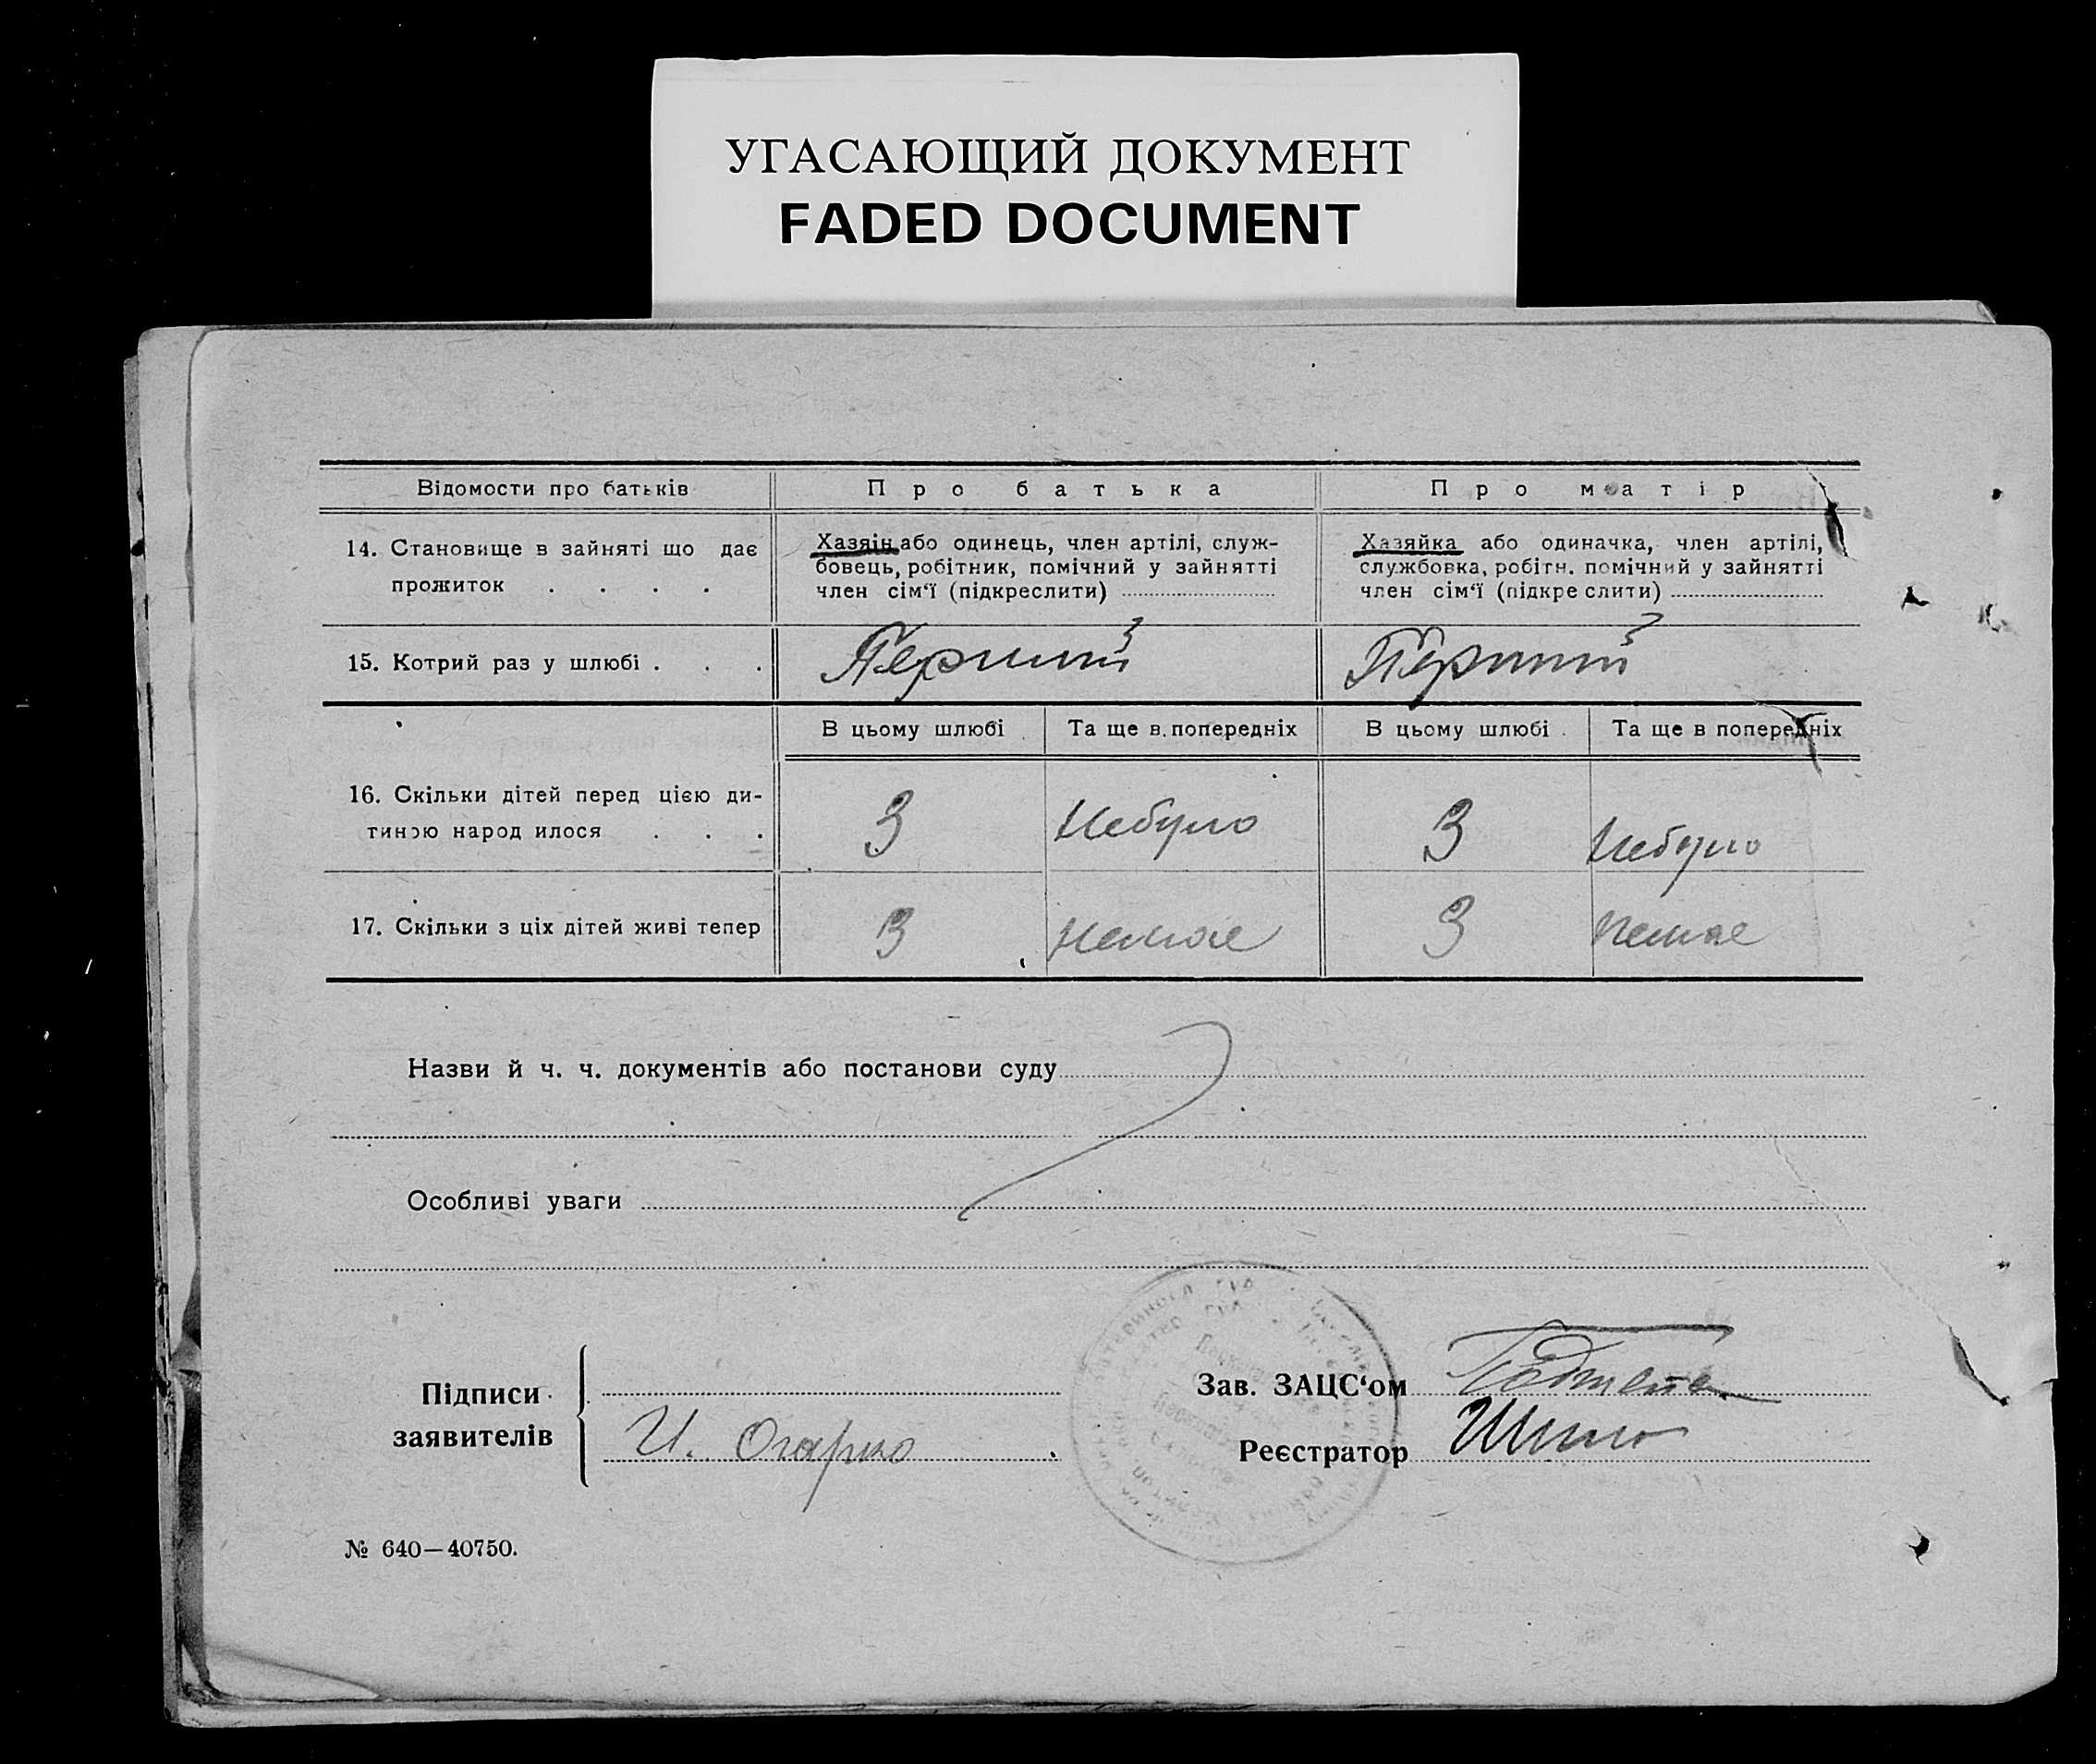 УГАСАЮЩИЙ ДОКУМЕНТ
FADED DOCUMENT
Відомости про батьків
Про батька
Про матір
14. Становище в зайняті що дає
прожиток . . . .
Хазяін або одинець, член артілі, служ-
бовець, робітник, помічний у зайнятті
член сім‘ї (підкреслити)
Хазяйка або одиначка, член артілі,
службовка, робітн. помічний у зайнятті
член сім‘ї (підкре слити)
15. Котрий раз у шлюбі . . .
Перший
Перший
В цьому шлюбі
Та ще в попередніх
В цьому шлюбі
Та ще в попередніх
16. Скільки дітей перед цією ди-
тиною народ илося . . .
3
Небуло
3
Небуло
17. Скільки з ціх дітей живі тепер
3
немае
3
немае
Назви й ч. ч. документів або постанови суду
Особливі уваги
Підписи
заявителів
И. Огарко
Зав. ЗАЦС‘ом
Реєстратор
№ 640—40750.